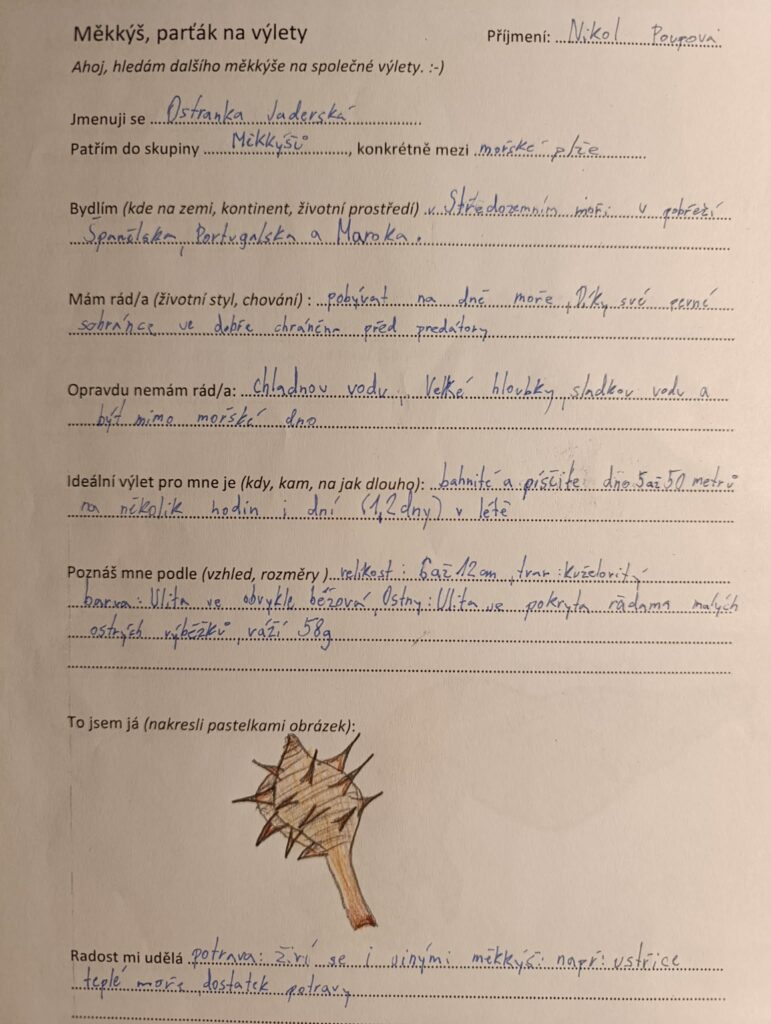 Měkkýš, parťák na výlety Příjmení: Nikol Poupová
Ahoj, hledám dalšího měkkýše na společné výlety. :-)
Jmenuji se Ostranka Jaderská
Patřím do skupiny Měkkýšů, konkrétně mezi mořské plže
Bydlím (kde na zemi, kontinent, životní prostředí) v Středozemním moři u pobřeží
Španělska, Portugalska a Maroka.
Mám rád/a (životní styl, chování) : pobývat na dně moře, Díky své pevné
schránce je dobře chráněna před predátory
Opravdu nemám rád/a: chladnou vodu, Velké hloubky, sladkou vodu a
být mimo mořské dno
Ideální výlet pro mne je (kdy, kam, na jak dlouho): bahnité a písčité dno 5 až 50 metrů
na několik hodin i dní (1,2 dny) v létě
Poznáš mne podle (vzhled, rozměry ) velikost: 6 až 12 cm, tvar: kuželovitý
barva: Ulita je obvykle béžová, Ostny: Ulita je pokryta řadama malých
ostrých výběžků, váží 58g
To jsem já (nakresli pastelkami obrázek):
Radost mi udělá potrava: živí se i jinými měkkýši např: ustřice
teplé moře, dostatek potravy